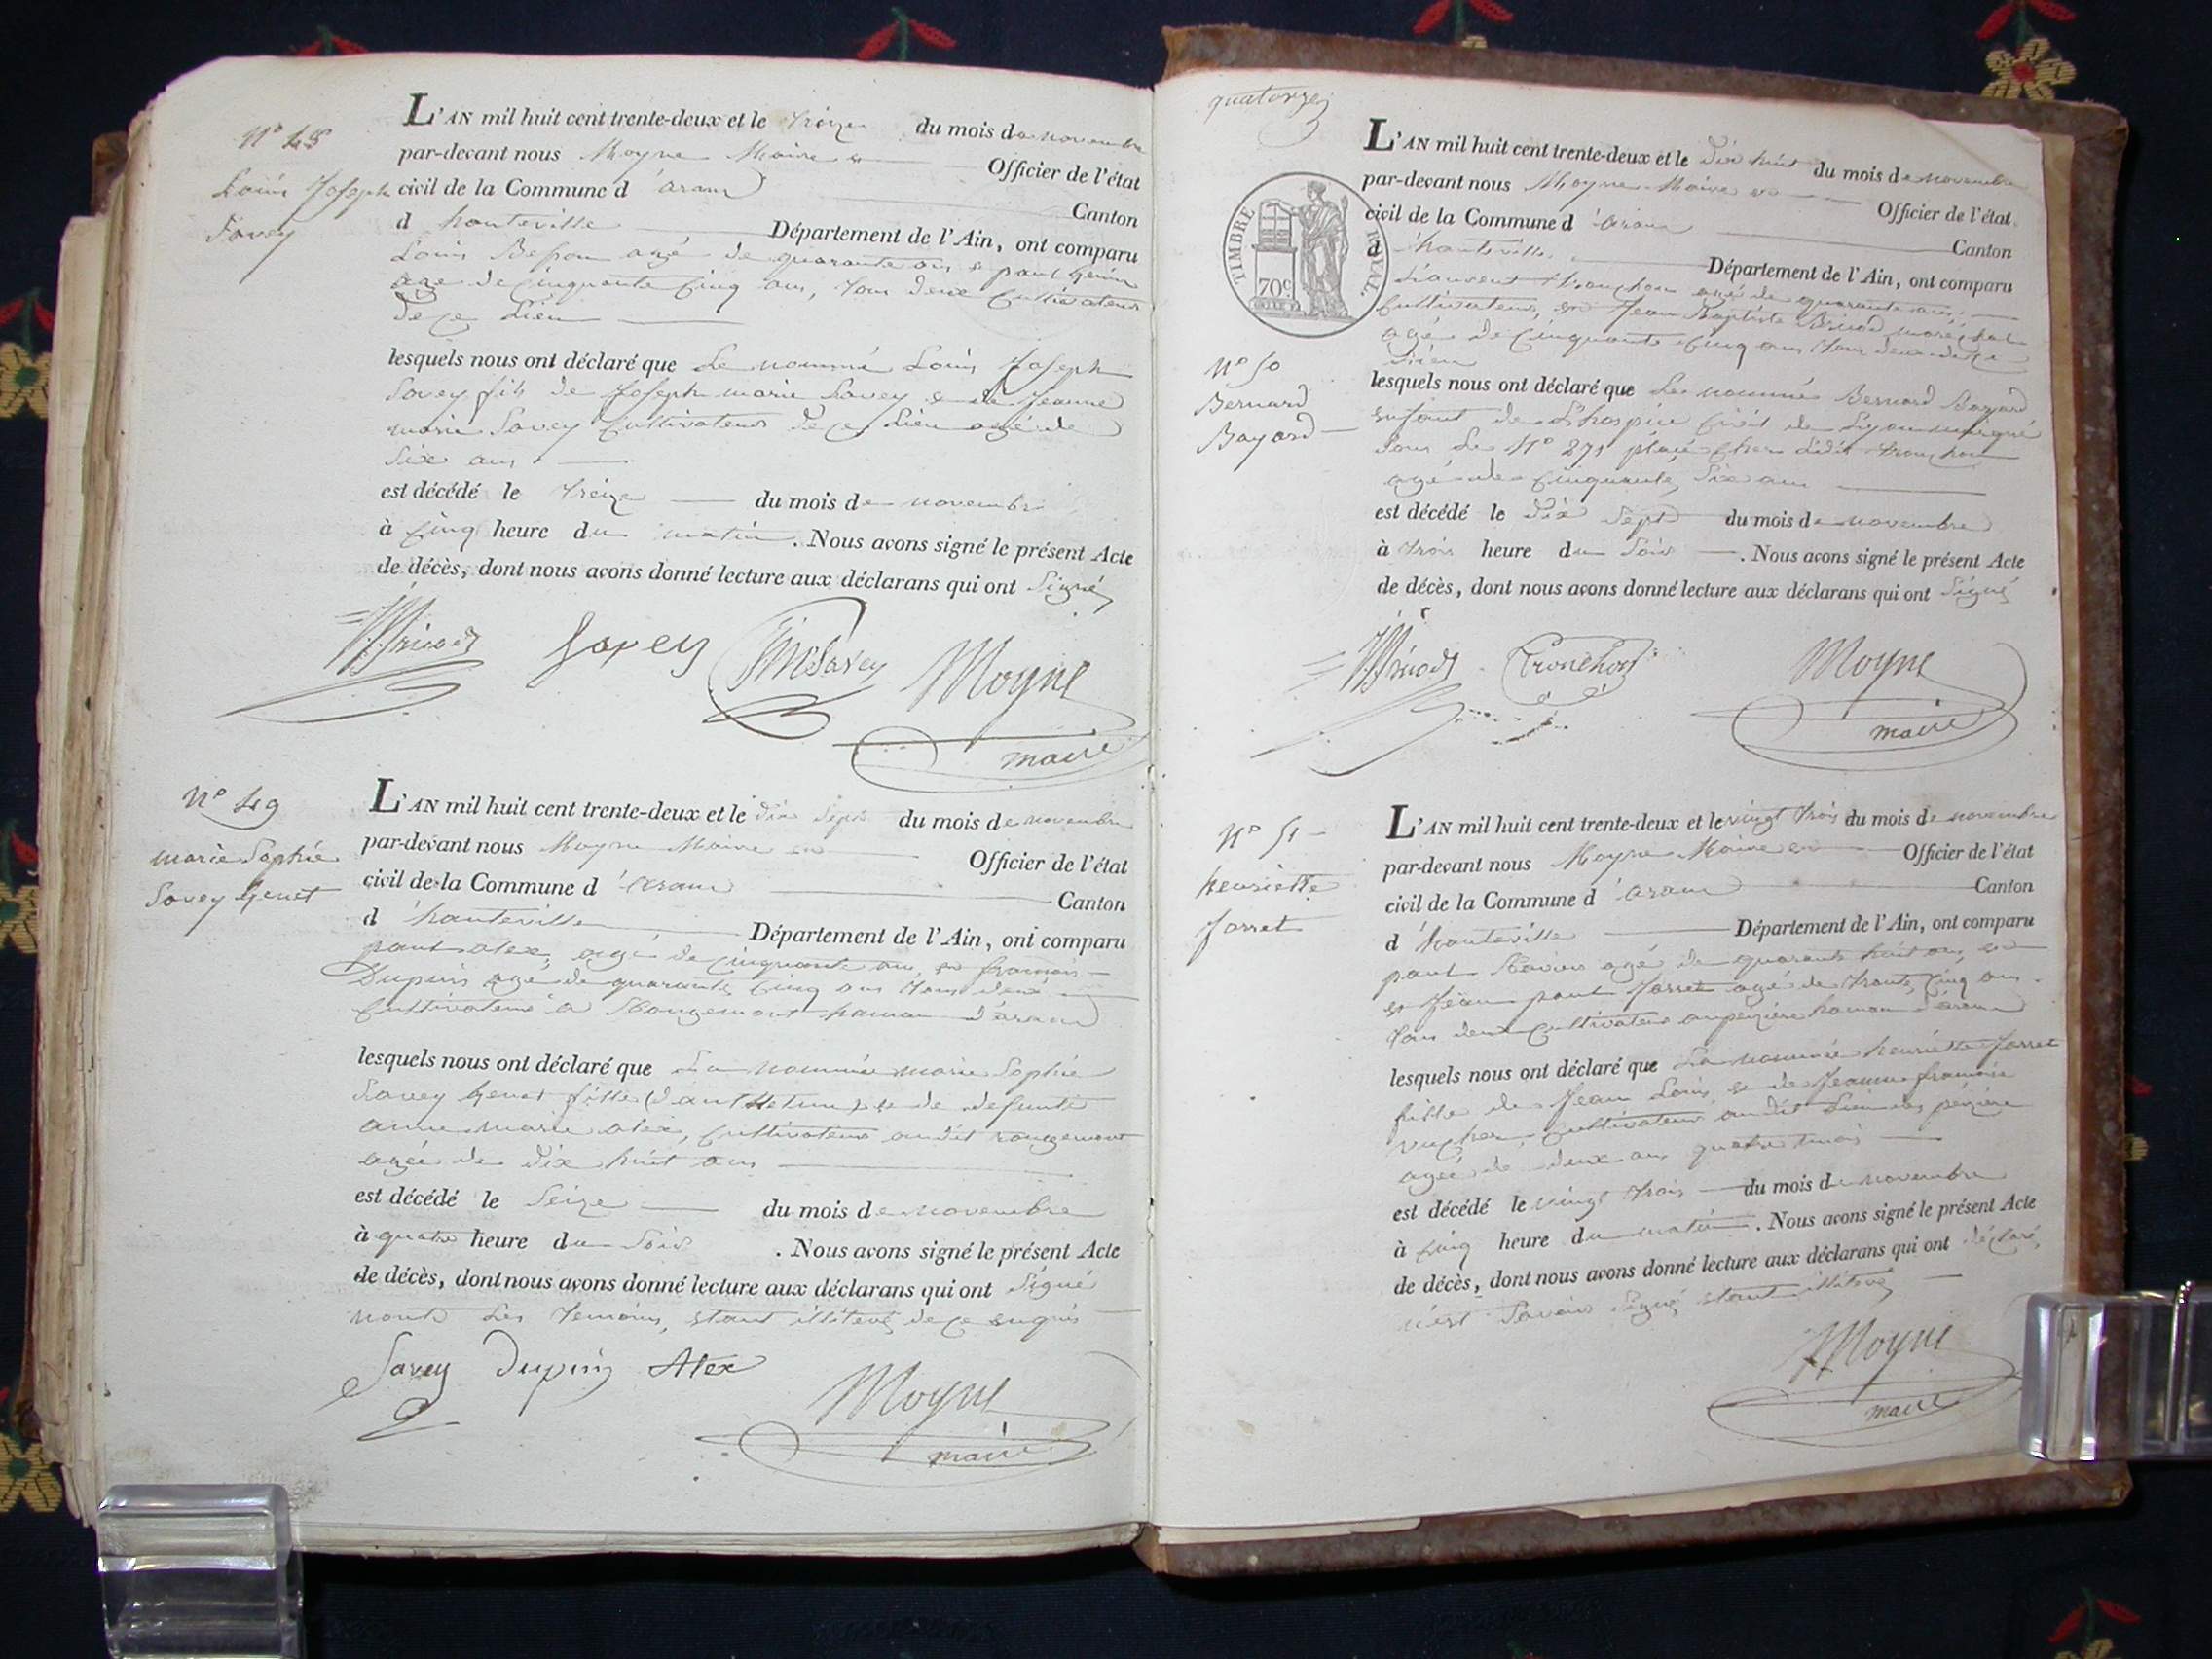 N° 48
Louis Joseph
Savey
L'AN mil huit cent trente-deux et le treize du mois de novembre
par-devant nous Moyne Maire et Officier de l'état
civil de la Commune d'aranc Canton
d'hauteville Département de l'Ain, ont comparu
Louis agé de quarante ans & paul
age de Cinquante Cinq ans, tous deux Cultivateurs
de ce Lieu
lesquels nous ont déclaré que Le nommé Louis Joseph
Savey fils de Joseph marie Savey & de Jeanne
marie Savey Cultivateurs de ce Lieu agé de
Six ans
est décédé le treize du mois de novembre
à Cinq heure du matin. Nous avons signé le présent Acte
de décès, dont nous avons donné lecture aux déclarans qui ont Signé
Savey Moyne
maire
N° 49
marie Sophie
Savey Genet
L'AN mil huit cent trente-deux et le dix Sept du mois de novembre
par-devant nous Moyne Maire et Officier de l'état
civil de la Commune d'aranc Canton
d'hauteville Département de l'Ain, ont comparu
paul alex, agé de Cinquante ans, et francois
Dupuis agé de quarante Cinq ans tous deux
Cultivateurs à Rougemont hamau d'aranc
lesquels nous ont déclaré que La nommée marie Sophie
Savey Genet fille et de defunte
anne marie alex, Cultivateurs audit rougemont
agée de dix huit ans
est décédé le Seize du mois de novembre
à quatre heure du Soir. Nous avons signé le présent Acte
de décès, dont nous avons donné lecture aux déclarans qui ont Signé
nont Les temoins, étant illiteré de ce enquis
Savey Dupuis Alex
Moyne
maire
quatorze
TIMBRE ROYAL.
70c
N° 50
Bernard
Bayard
L'AN mil huit cent trente-deux et le dix huit du mois de novembre
par-devant nous Moyne Maire et Officier de l'état
civil de la Commune d'aranc Canton
d'hauteville Département de l'Ain, ont comparu
Laurent tronchon agé de quarante ans
Cultivateur, et Jean Baptiste Brisod maréchal
agé de Cinquante Cinq ans tous deux de ce
Lieu
lesquels nous ont déclaré que Le nommé Bernard Bayard
enfant de L'hospice Civil de Lyon marqué
Sous Le N° 271 placé Chez Ledit tronchon
agé de Cinquante Six ans
est décédé le dix Sept du mois de novembre
à trois heure du Soir. Nous avons signé le présent Acte
de décès, dont nous avons donné lecture aux déclarans qui ont Signé
Tronchon Moyne
maire
N° 51
henriette
Jarret
L'AN mil huit cent trente-deux et le vingt trois du mois de novembre
par-devant nous Moyne Maire et Officier de l'état
civil de la Commune d'aranc Canton
d'hauteville Département de l'Ain, ont comparu
paul agé de quarante huit ans, et
et Jean paul Jarret agé de trente Cinq ans
tous deux Cultivateurs hamau d'aranc
lesquels nous ont déclaré que La nommée henriette Jarret
fille de Jean Louis, et de Jeanne francoise
Cultivateurs audit Lieu
agée de deux ans quatre mois
est décédé le vingt trois du mois de novembre
à Cinq heure du matin. Nous avons signé le présent Acte
de décès, dont nous avons donné lecture aux déclarans qui ont déclaré,
Savoir Signé étant illiteré
Moyne
maire